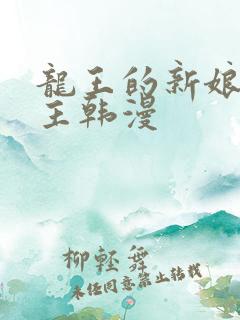 龍王的新娘
王韩漫
柳轻舞
未经同意禁止转载